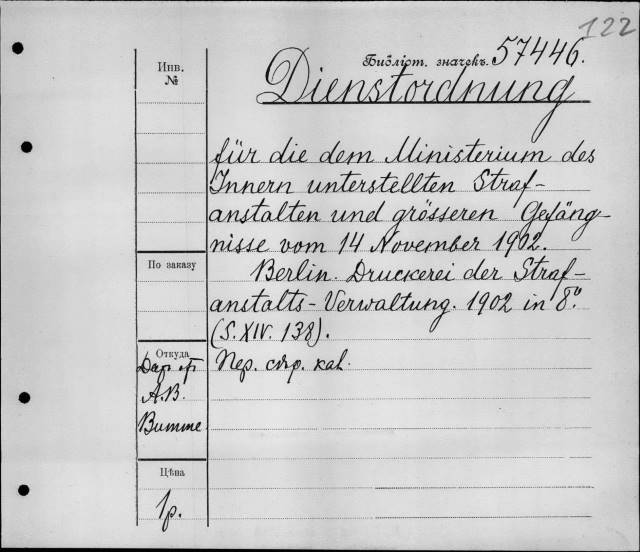 122
Инв.
№
Библіот. значекъ. 57446.
Dienstordnung
für die dem Ministerium des
Innern unterstellten Straf-
anstalten und grösseren Gefäng-
nisse vom 14 November 1902.
По заказу
Berlin. Druckerei der Straf-
anstalts-Verwaltung. 1902 in 8º.
(S. XIV. 138).
Откуда
Пер.
A.B.
Цѣна
1р.